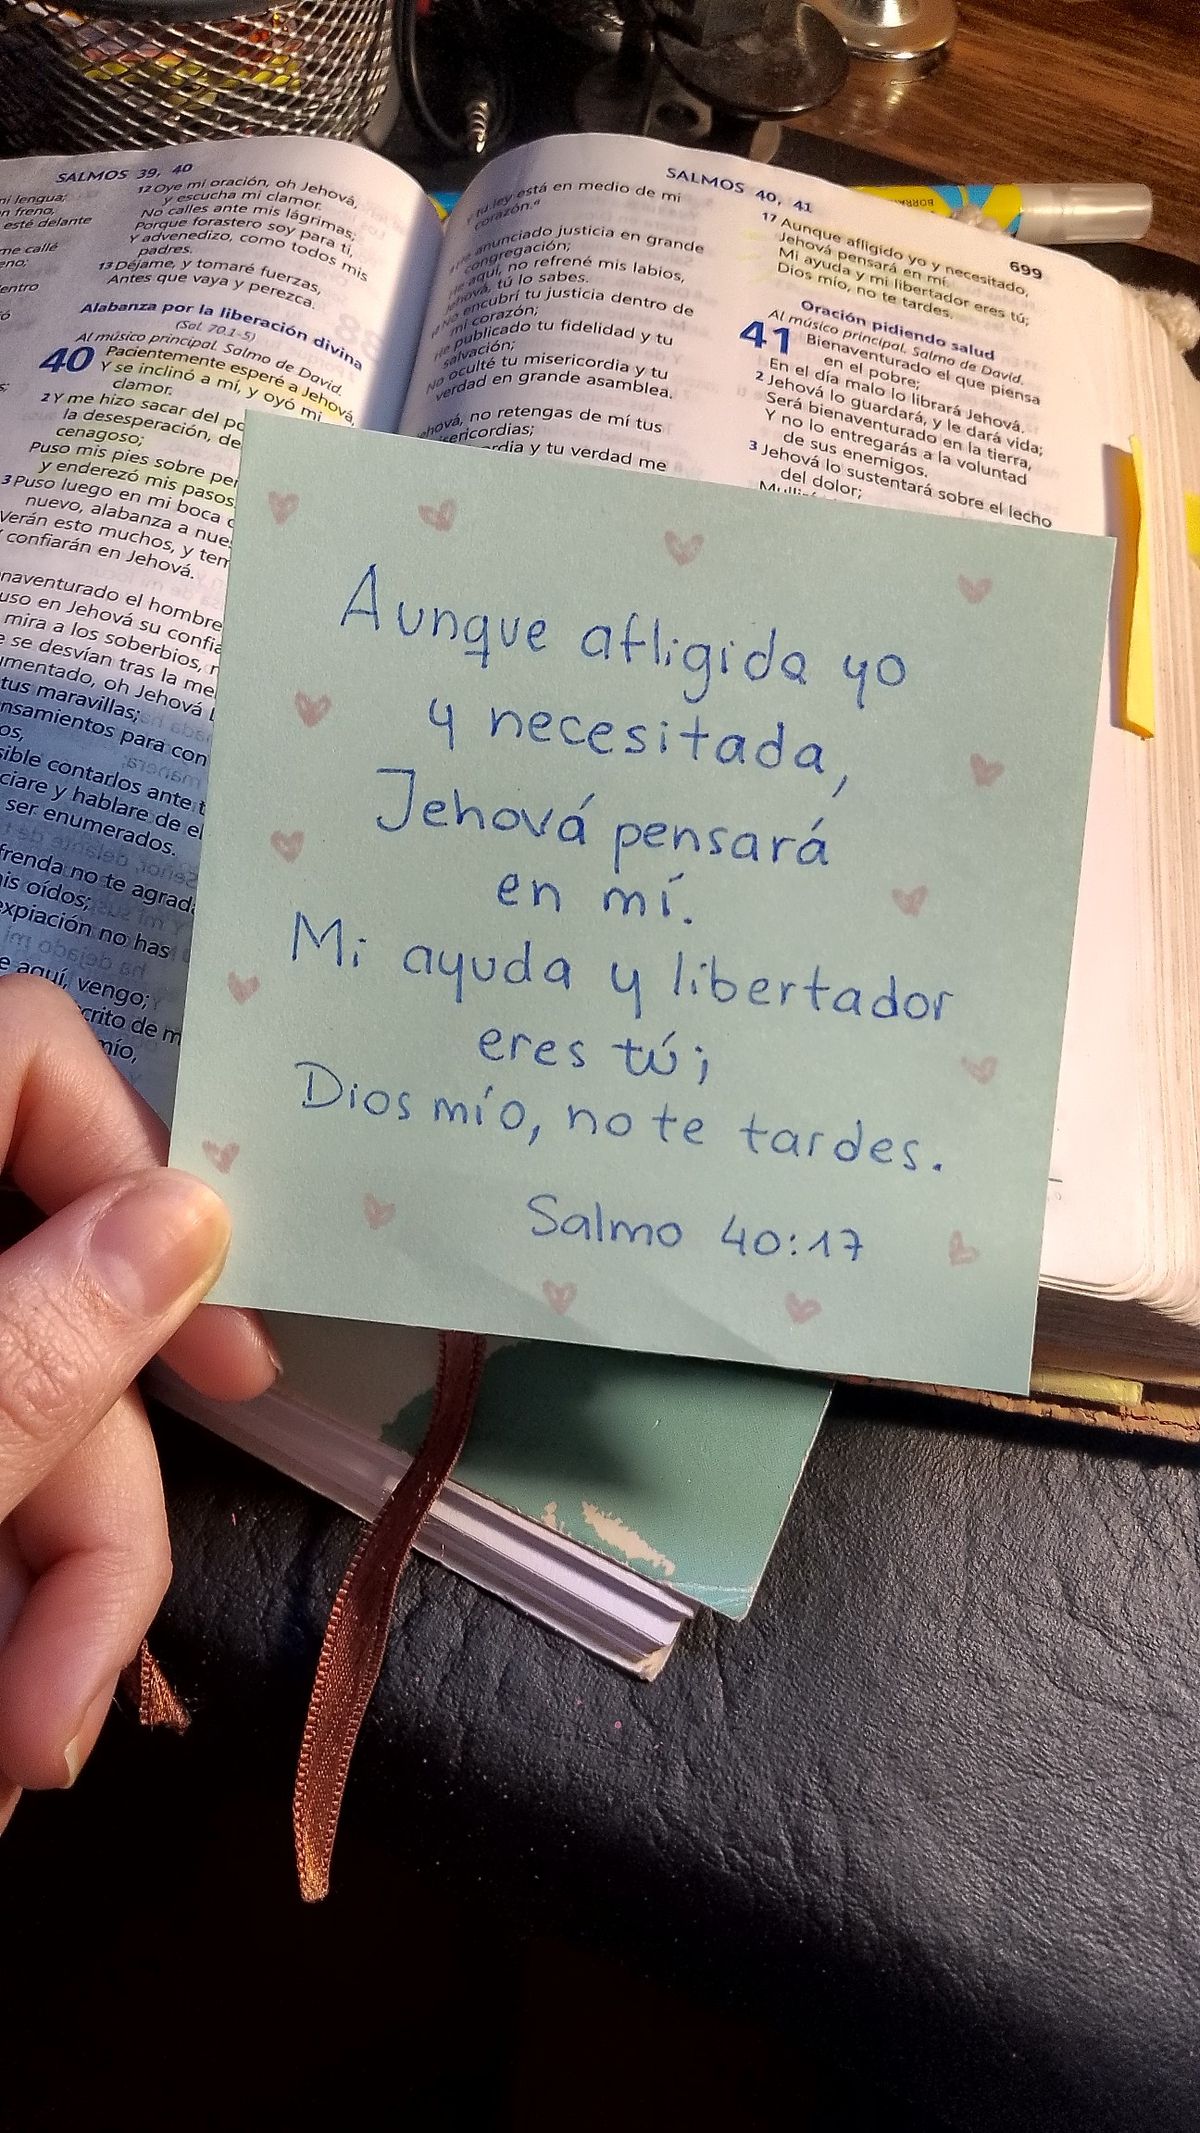 SALMOS 39, 40
mi lengua;
n freno,
esté delante
me callé
12 Oye mi oración, oh Jehová,
y escucha mi clamor.
No calles ante mis lágrimas;
Porque forastero soy para ti,
Y advenedizo, como todos mis
padres.
13 Déjame, y tomaré fuerzas,
Antes que vaya y perezca.
Alabanza por la liberación divina
(Sal. 70.1-5)
Al músico principal. Salmo de David.
40 Pacientemente esperé a Jehová,
Y se inclinó a mí, y oyó mi
clamor.
2 Y me hizo sacar del po
la desesperación, de
cenagoso;
Puso mis pies sobre pe
y enderezó mis pasos
3 Puso luego en mi boca c
nuevo, alabanza a nue
Verán esto muchos, y tem
Y confiarán en Jehová.
naventurado el hombre
uso en Jehová su confia
mira a los soberbios, n
e se desvían tras la me
umentado, oh Jehová
tus maravillas;
nsamientos para con
os,
sible contarlos ante t
ciare y hablare de el
ser enumerados.
frenda no te agrada
is oídos;
expiación no has
e aquí, vengo;
crito de m
mío,
SALMOS 40, 41
699
tu ley está en medio de mi
corazón.
anunciado justicia en grande
congregación;
He aquí, no refrené mis labios,
Jehová, tú lo sabes.
No encubrí tu justicia dentro de
mi corazón;
He publicado tu fidelidad y tu
salvación;
No oculté tu misericordia y tu
verdad en grande asamblea.
hová, no retengas de mí tus
sericordias;
ordia y tu verdad me
17 Aunque afligido yo y necesitado,
Jehová pensará en mí.
Mi ayuda y mi libertador eres tú;
Dios mío, no te tardes.
Oración pidiendo salud
Al músico principal. Salmo de David.
41 Bienaventurado el que piensa
en el pobre;
En el día malo lo librará Jehová.
2 Jehová lo guardará, y le dará vida;
Será bienaventurado en la tierra,
Y no lo entregarás a la voluntad
de sus enemigos.
3 Jehová lo sustentará sobre el lecho
del dolor;
BORRA
Aunque afligida yo
y necesitada,
Jehová pensará
en mí.
Mi ayuda y libertador
eres tú;
Dios mío, no te tardes.
Salmo 40:17